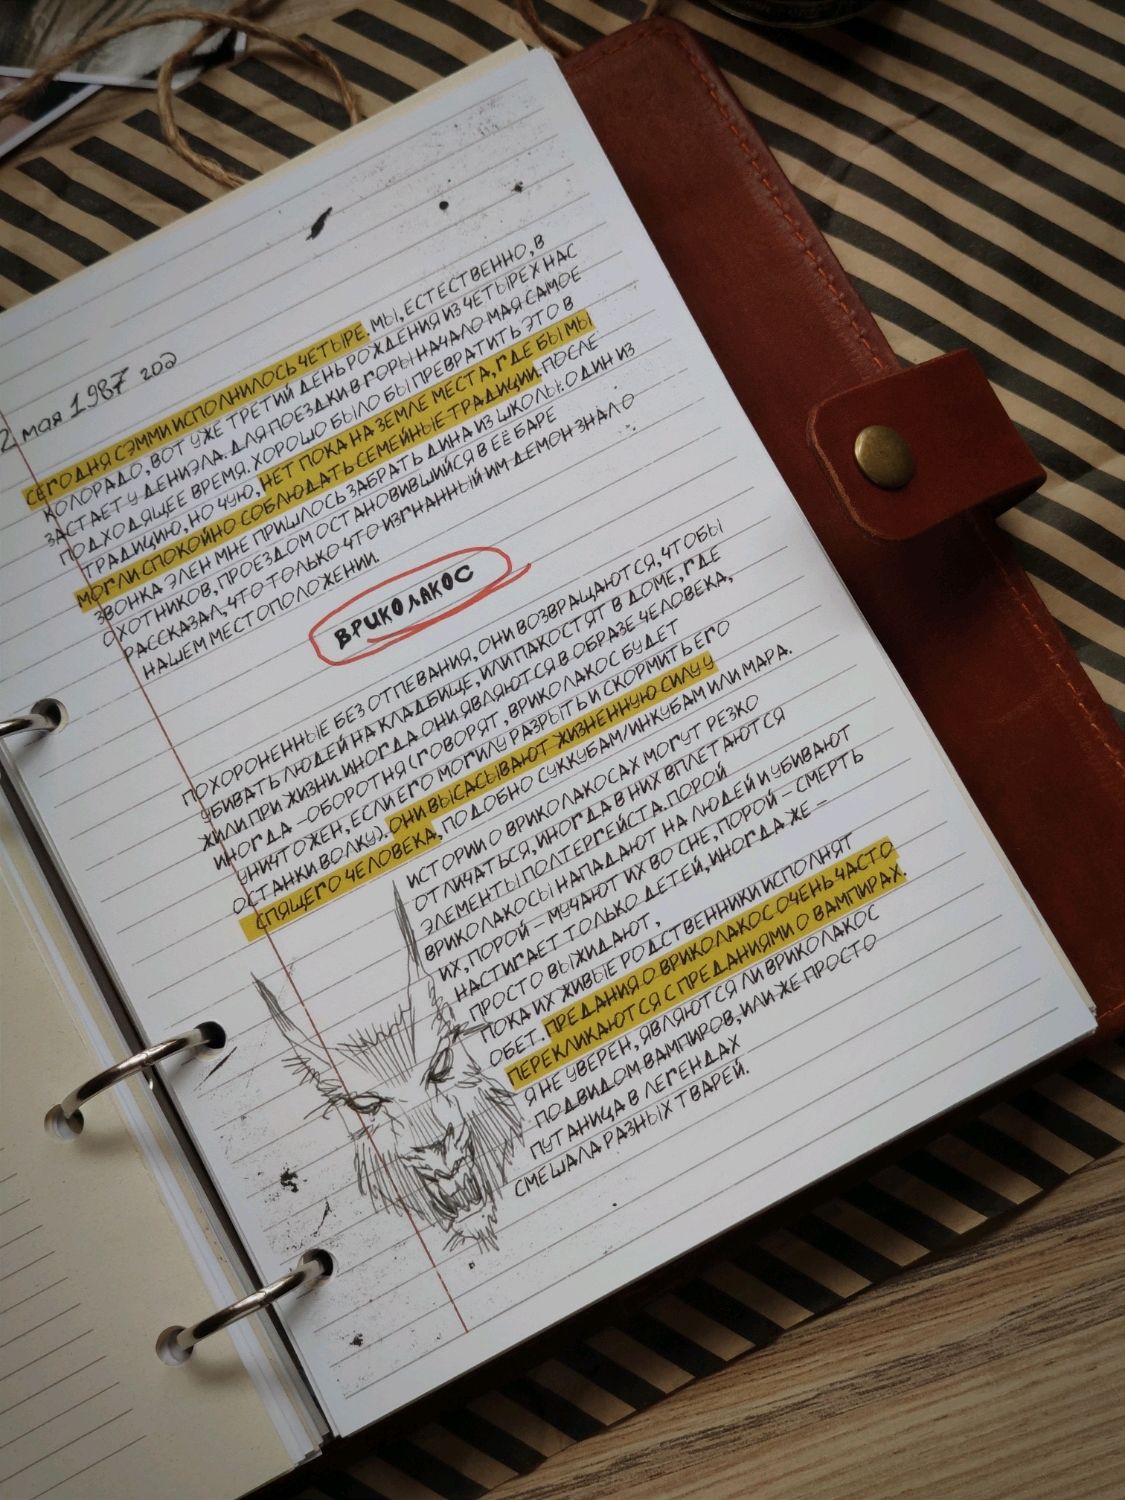 2 мая 1987 год
СЕГОДНЯ СЭММИ ИСПОЛНИЛОСЬ ЧЕТЫРЕ. МЫ, ЕСТЕСТВЕННО, В
КОЛОРАДО, ВОТ УЖЕ ТРЕТИЙ ДЕНЬ РОЖДЕНИЯ ИЗ ЧЕТЫРЕХ НАС
ЗАСТАЕТ У ДЕНИЭЛА. ДЛЯ ПОЕЗДКИ В ГОРЫ НАЧАЛО МАЯ САМОЕ
ПОДХОДЯЩЕЕ ВРЕМЯ. ХОРОШО БЫЛО БЫ ПРЕВРАТИТЬ ЭТО В
ТРАДИЦИЮ, НО ЧУЮ, НЕТ ПОКА НА ЗЕМЛЕ МЕСТА, ГДЕ БЫ МЫ
МОГЛИ СПОКОЙНО СОБЛЮДАТЬ СЕМЕЙНЫЕ ТРАДИЦИИ. ПОСЛЕ
ЗВОНКА ЭЛЕН МНЕ ПРИШЛОСЬ ЗАБРАТЬ ДИНА ИЗ ШКОЛЫ: ОДИН ИЗ
ОХОТНИКОВ, ПРОЕЗДОМ ОСТАНОВИВШИЙСЯ В ЕЁ БАРЕ
РАССКАЗАЛ, ЧТО ТОЛЬКО ЧТО ИЗГНАННЫЙ ИМ ДЕМОН ЗНАЛ О
НАШЕМ МЕСТОПОЛОЖЕНИИ.
ВРИКОЛАКОС
ПОХОРОНЕННЫЕ БЕЗ ОТПЕВАНИЯ, ОНИ ВОЗВРАЩАЮТСЯ, ЧТОБЫ
УБИВАТЬ ЛЮДЕЙ НА КЛАДБИЩЕ, ИЛИ ПАКОСТЯТ В ДОМЕ, ГДЕ
ЖИЛИ ПРИ ЖИЗНИ. ИНОГДА ОНИ ЯВЛЯЮТСЯ В ОБРАЗЕ ЧЕЛОВЕКА,
ИНОГДА - ОБОРОТНЯ (ГОВОРЯТ, ВРИКОЛАКОС БУДЕТ
УНИЧТОЖЕН, ЕСЛИ ЕГО МОГИЛУ РАЗРЫТЬ И СКОРМИТЬ ЕГО
ОСТАНКИ ВОЛКУ). ОНИ ВЫСАСЫВАЮТ ЖИЗНЕННУЮ СИЛУ У
СПЯЩЕГО ЧЕЛОВЕКА, ПОДОБНО СУККУБАМ/ИНКУБАМ ИЛИ МАРА.
ИСТОРИИ О ВРИКОЛАКОСАХ МОГУТ РЕЗКО
ОТЛИЧАТЬСЯ, ИНОГДА В НИХ ВПЛЕТАЮТСЯ
ЭЛЕМЕНТЫ ПОЛТЕРГЕЙСТА. ПОРОЙ
ВРИКОЛАКОСЫ НАПАДАЮТ НА ЛЮДЕЙ И УБИВАЮТ
ИХ, ПОРОЙ - МУЧАЮТ ИХ ВО СНЕ, ПОРОЙ - СМЕРТЬ
НАСТИГАЕТ ТОЛЬКО ДЕТЕЙ, ИНОГДА ЖЕ -
ПРОСТО ВЫЖИДАЮТ,
ПОКА ИХ ЖИВЫЕ РОДСТВЕННИКИ ИСПОЛНЯТ
ОБЕТ. ПРЕДАНИЯ О ВРИКОЛАКОС ОЧЕНЬ ЧАСТО
ПЕРЕКЛИКАЮТСЯ С ПРЕДАНИЯМИ О ВАМПИРАХ.
Я НЕ УВЕРЕН, ЯВЛЯЮТСЯ ЛИ ВРИКОЛАКОС
ПОДВИДОМ ВАМПИРОВ, ИЛИ ЖЕ ПРОСТО
ПУТАНИЦА В ЛЕГЕНДАХ
СМЕШАЛА РАЗНЫХ ТВАРЕЙ.